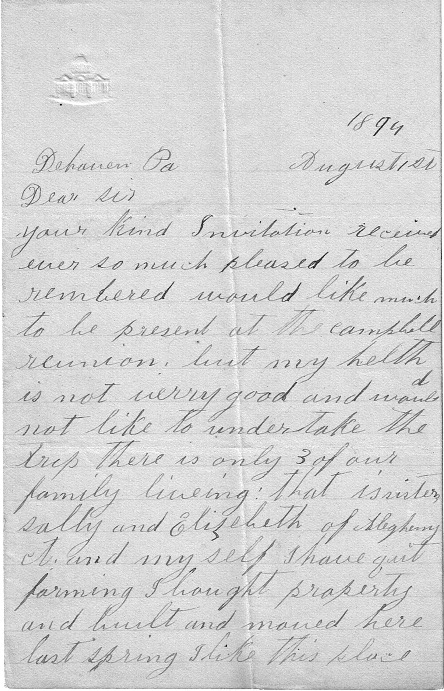 1894
Dehaven Pa August 1st
Dear Sir
your kind Invitation received
ever so much pleased to be
rembered would like much
to be present at the Campbell
reunion, but my helth
is not verry good and would
not like to undertake the
trip there is only 3 of our
family liveing: that is sister
sally and Elizebeth of Alegheny
and my self I have quit
farming I bought property
and built and moved here
last spring I like this place